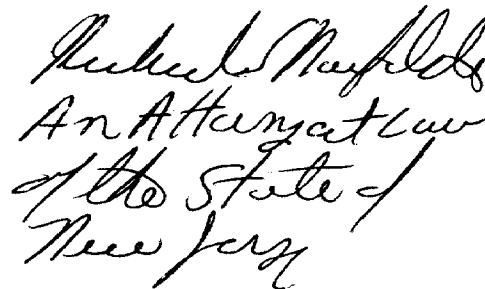 An Attorney at Law
of the State of
New Jersey